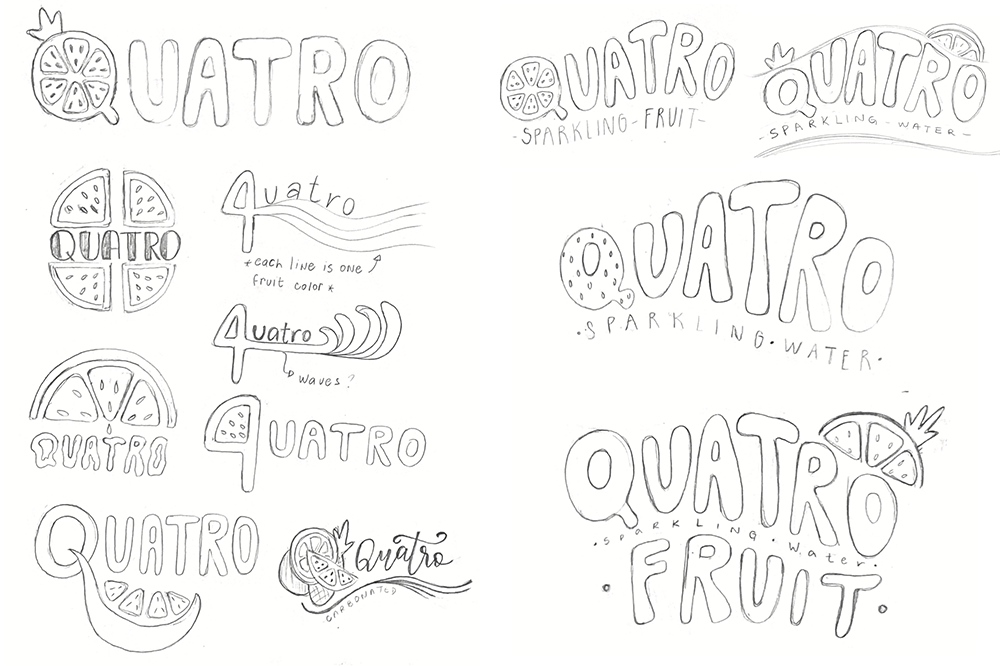 QUATRO
QUATRO
4uatro
*each line is one
fruit color*
4uatro
waves?
QUATRO
4UATRO
QUATRO
Quatro
CARBONATED
QUATRO
-SPARKLING-FRUIT-
QUATRO
-SPARKLING-WATER-
QUATRO
·SPARKLING·WATER·
QUATRO
·sparkling·water·
FRUIT